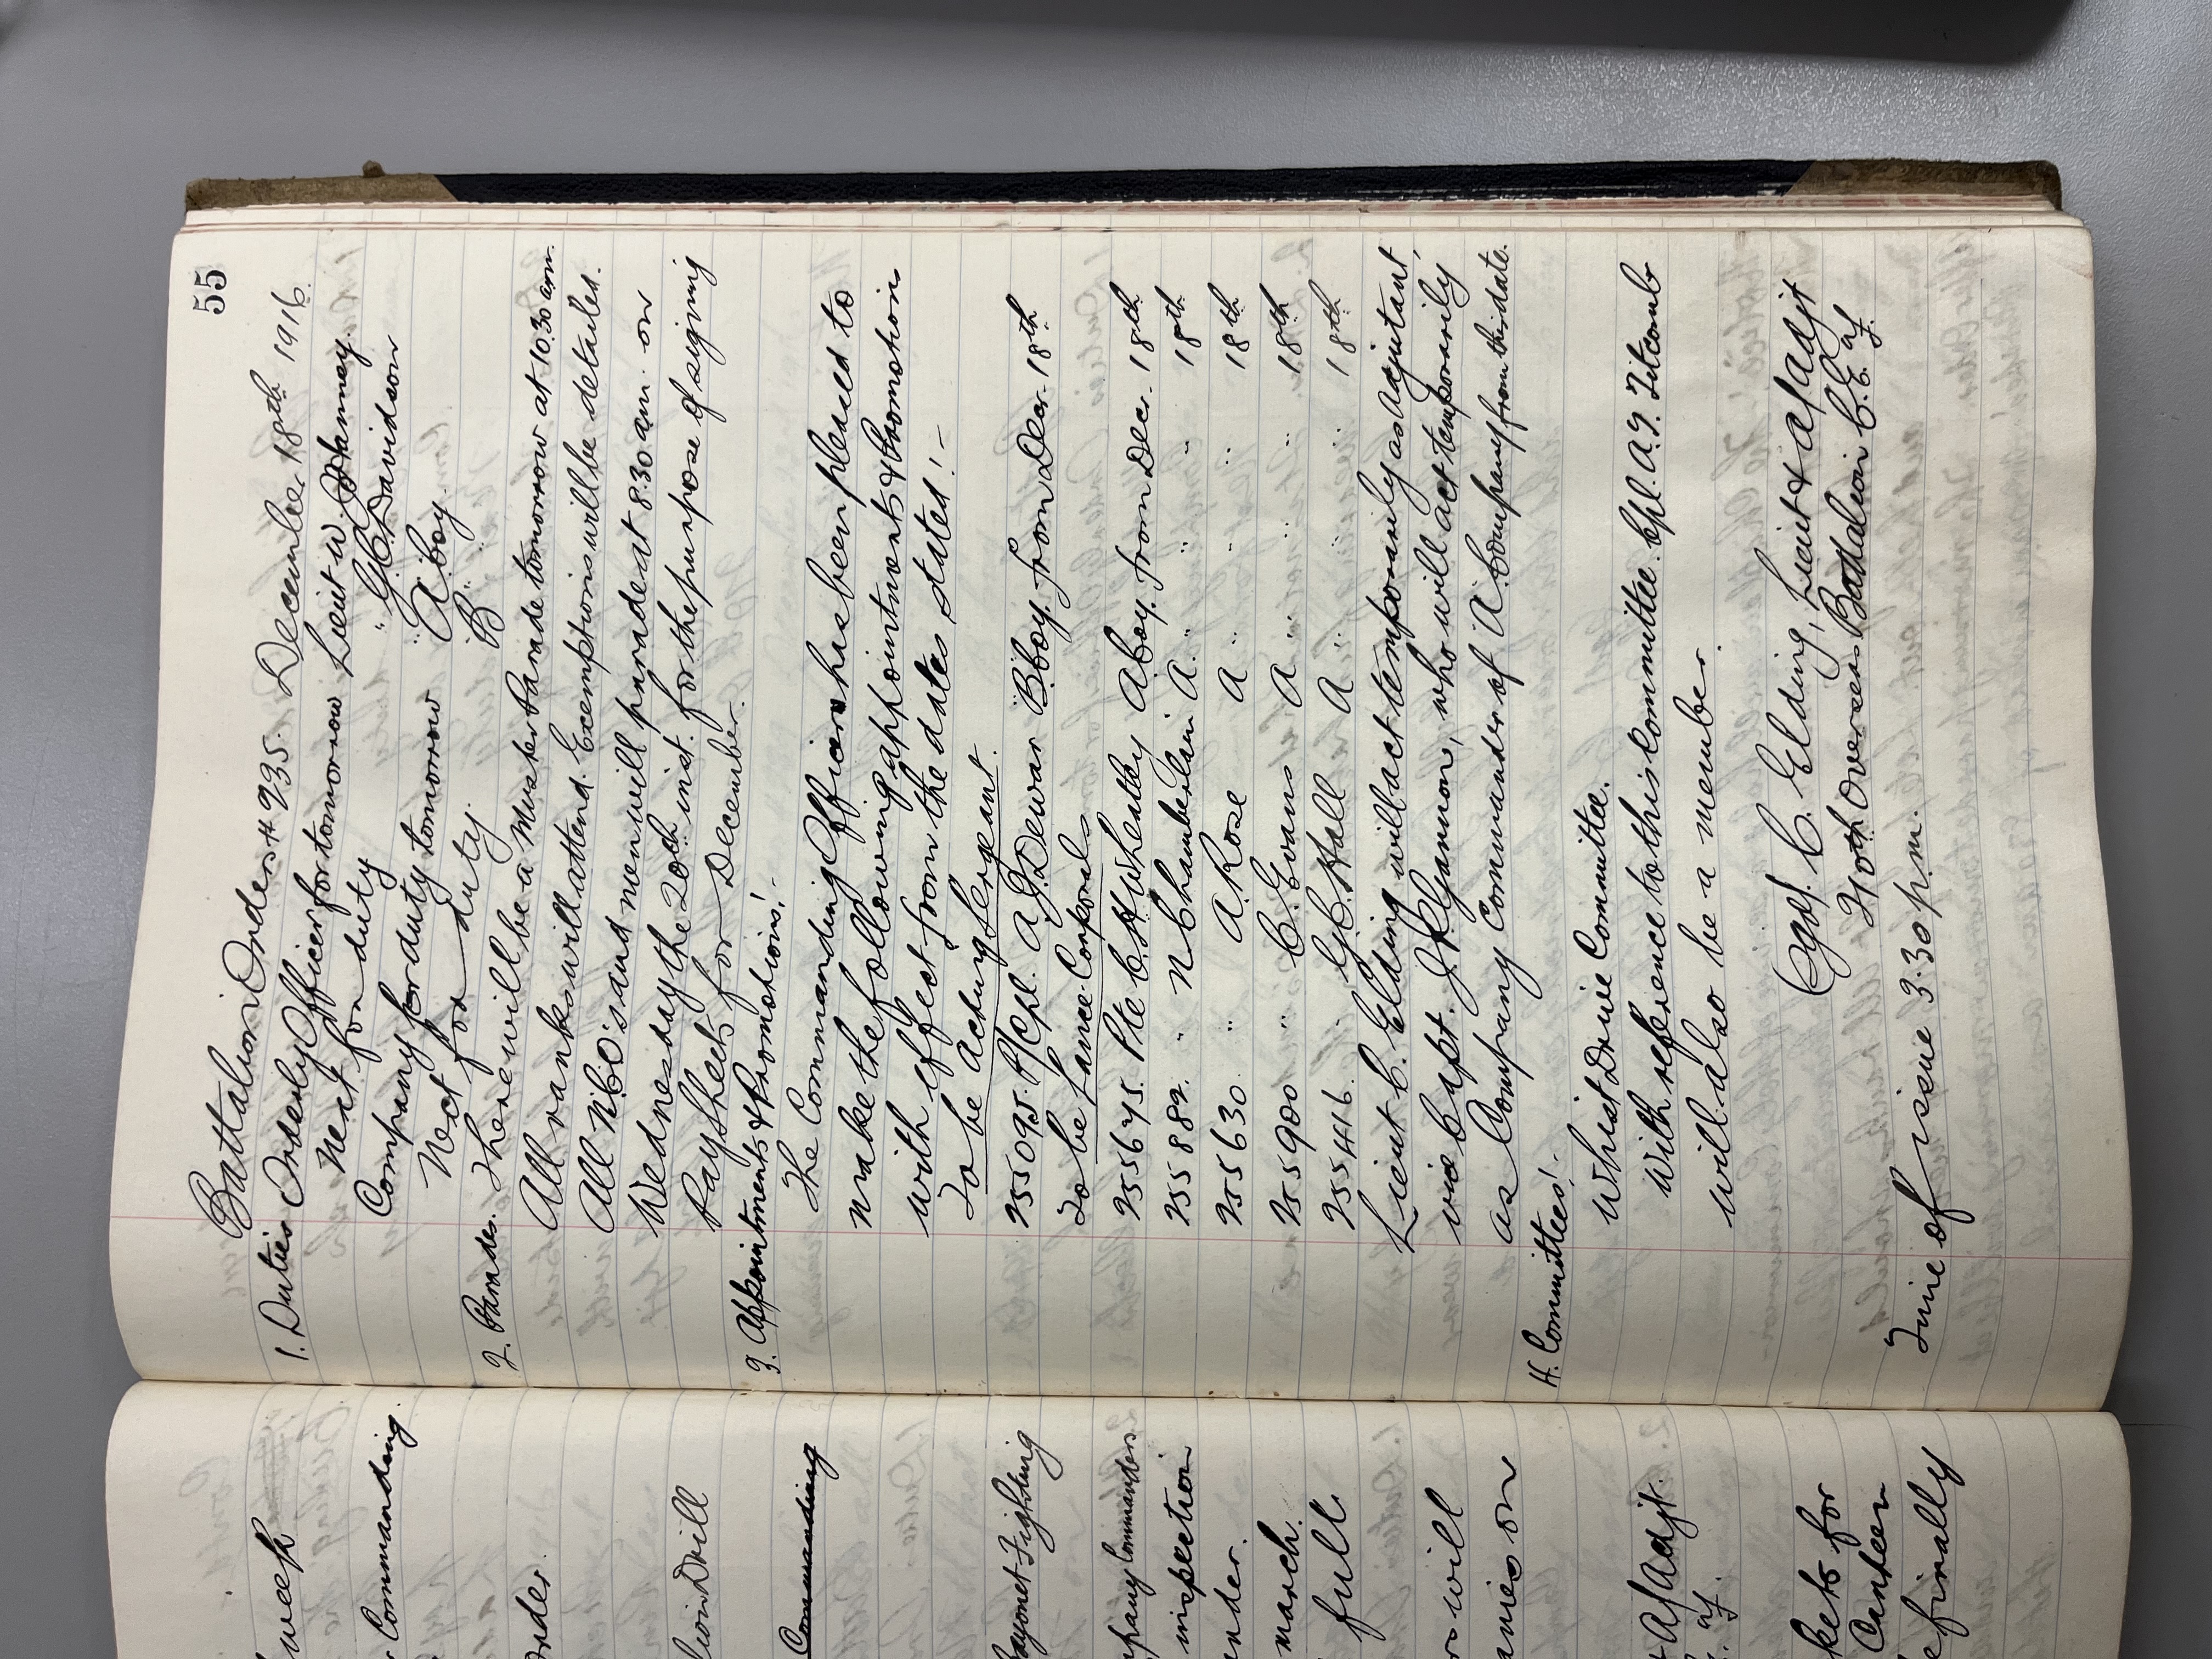 week
Commanding.
Order.
Drill
Commanding
Bayonet Fighting
Company Commanders
inspection
march.
full
will
on
A/Adjt.
for
Canteen
finally
55
Battalion Orders # 235. December 18th 1916.
1. Duties Orderly Officer for tomorrow Lieut W.
Next for duty " G.C. Davidson
Company for duty tomorrow A Coy.
Next for duty B "
2. Parades. There will be a Muster Parade tomorrow at 10.30 am.
All ranks will attend. Exemptions will be detailed.
All N.C.O's and men will parade at 8.30 am. on
Wednesday the 20th inst. for the purpose of signing
Pay Sheets for December.
3. Appointments & Promotions:-
The Commanding Officer has been pleased to
make the following appointments & Promotions
with effect from the dates stated:-
To be Acting Sergeant.
255095. A/Cpl. A.J. Dewar B Coy. from Dec. 18th
To be Lance-Corporals
255675. Pte C.H. Wheatley A Coy. from Dec. 18th
255889. " N Chamberlain A. " " " 18th
255630. " A. Rose A " " " 18th
255900 " C. Evans A " " " 18th
255446. " G.C. Hall A " " " 18th
Lieut C. Elding will act temporarily as adjutant,
vice Capt. J.R. Gannon, who will act temporarily
as Company Commander of A Company from this date.
4. Committees:-
Whist Drive Committee.
With reference to this Committee. Cpl. A.T. Titcomb
will also be a member.
(Sgd). C. Elding, Lieut & A/Adjt
210th Overseas Battalion C.E.F.
Time of issue 3.30 p.m.